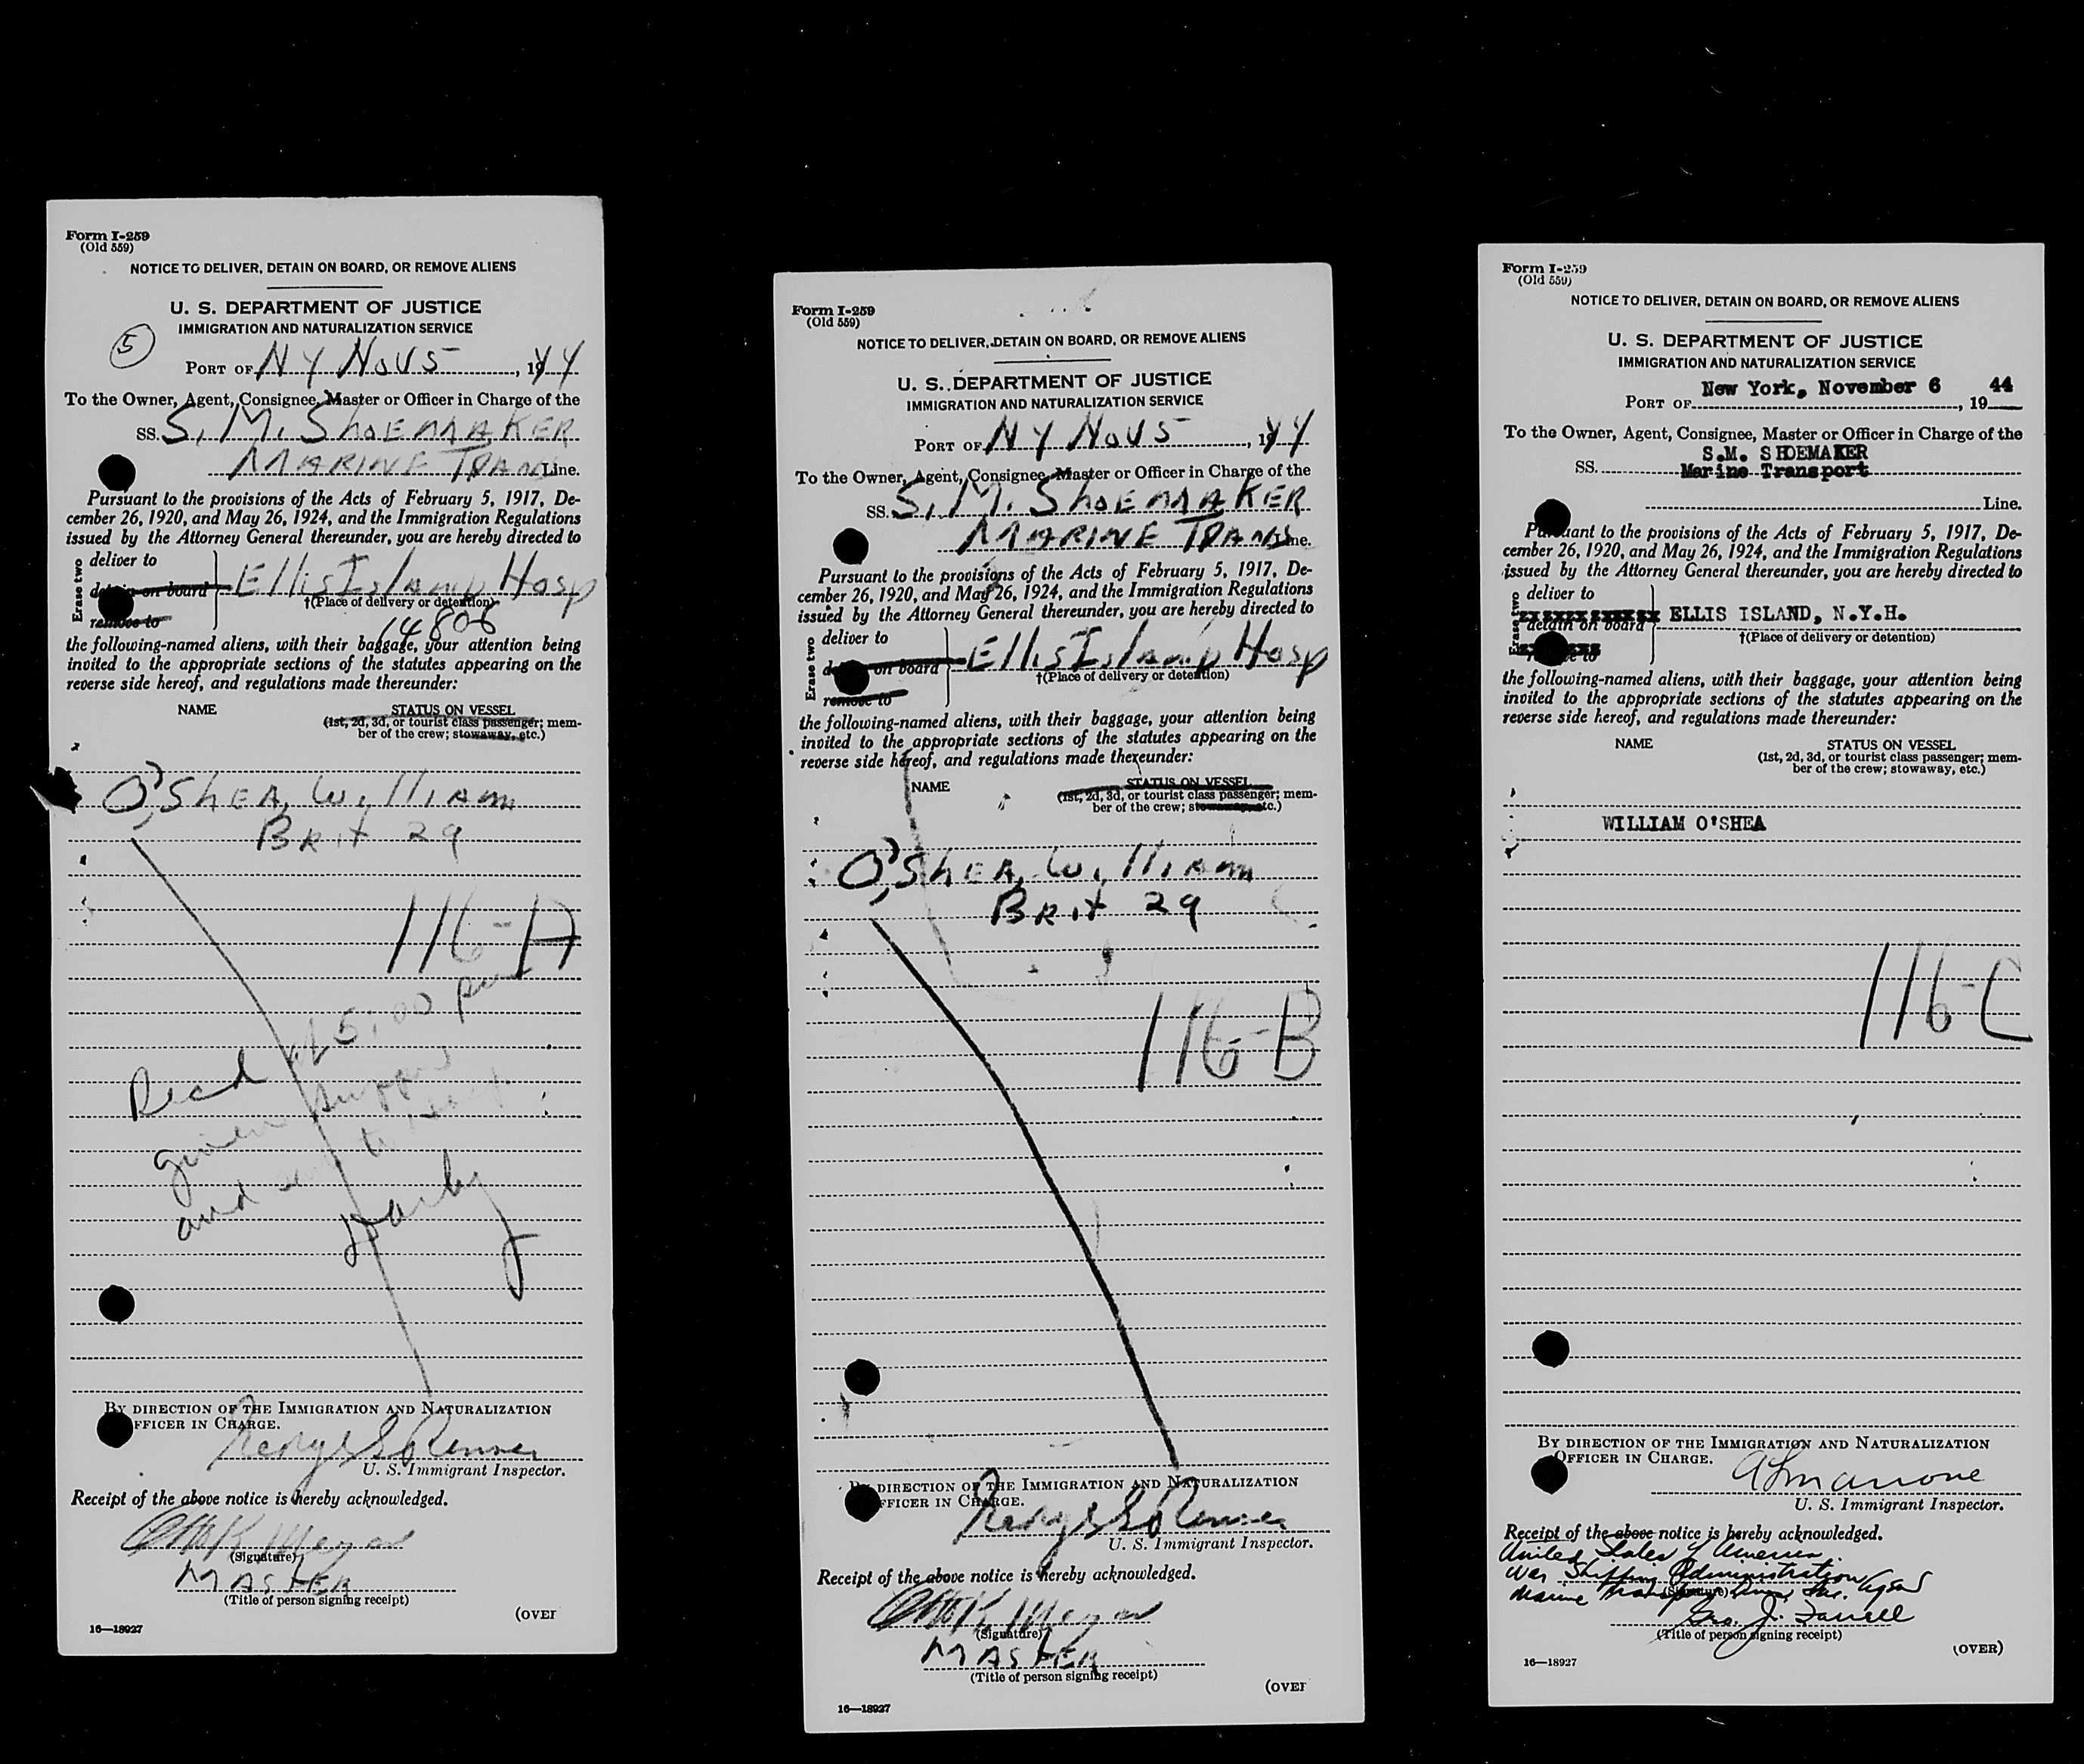 Form I-259
(Old 559)
NOTICE TO DELIVER, DETAIN ON BOARD, OR REMOVE ALIENS
U. S. DEPARTMENT OF JUSTICE
IMMIGRATION AND NATURALIZATION SERVICE
5
PORT OF N Y Nov 5, 1944
To the Owner, Agent, Consignee, Master or Officer in Charge of the
SS. S. M. SHOEMAKER
MARINE TRANS Line.
Pursuant to the provisions of the Acts of February 5, 1917, De-
cember 26, 1920, and May 26, 1924, and the Immigration Regulations
issued by the Attorney General thereunder, you are hereby directed to
Erase two
deliver to
detain on board Ellis Island Hosp
†(Place of delivery or detention)
remove to
14806
the following-named aliens, with their baggage, your attention being
invited to the appropriate sections of the statutes appearing on the
reverse side hereof, and regulations made thereunder:
NAME STATUS ON VESSEL
(1st, 2d, 3d, or tourist class passenger; mem-
ber of the crew; stowaway, etc.)
O'SHEA, William
BRIT 29
116-A
Recd 5.00
given
and to
BY DIRECTION OF THE IMMIGRATION AND NATURALIZATION
OFFICER IN CHARGE.
U. S. Immigrant Inspector.
Receipt of the above notice is hereby acknowledged.
(Signature)
MASTER
(Title of person signing receipt)
(OVER
16—18927
Form I-259
(Old 559)
NOTICE TO DELIVER, DETAIN ON BOARD, OR REMOVE ALIENS
U. S. DEPARTMENT OF JUSTICE
IMMIGRATION AND NATURALIZATION SERVICE
PORT OF N Y Nov 5, 1944
To the Owner, Agent, Consignee, Master or Officer in Charge of the
SS. S. M. SHOEMAKER
MARINE TRANS Line.
Pursuant to the provisions of the Acts of February 5, 1917, De-
cember 26, 1920, and May 26, 1924, and the Immigration Regulations
issued by the Attorney General thereunder, you are hereby directed to
Erase two
deliver to
detain on board Ellis Island Hosp
†(Place of delivery or detention)
remove to
the following-named aliens, with their baggage, your attention being
invited to the appropriate sections of the statutes appearing on the
reverse side hereof, and regulations made thereunder:
NAME STATUS ON VESSEL
(1st, 2d, 3d, or tourist class passenger; mem-
ber of the crew; stowaway, etc.)
O'SHEA, William
BRIT 29
116-B
BY DIRECTION OF THE IMMIGRATION AND NATURALIZATION
OFFICER IN CHARGE.
U. S. Immigrant Inspector.
Receipt of the above notice is hereby acknowledged.
(Signature)
MASTER
(Title of person signing receipt)
(OVER
16—18927
Form I-259
(Old 559)
NOTICE TO DELIVER, DETAIN ON BOARD, OR REMOVE ALIENS
U. S. DEPARTMENT OF JUSTICE
IMMIGRATION AND NATURALIZATION SERVICE
PORT OF New York, November 6, 1944
To the Owner, Agent, Consignee, Master or Officer in Charge of the
S.M. SHOEMAKER
SS. Marine Transport
Line.
Pursuant to the provisions of the Acts of February 5, 1917, De-
cember 26, 1920, and May 26, 1924, and the Immigration Regulations
issued by the Attorney General thereunder, you are hereby directed to
Erase two
deliver to
detain on board ELLIS ISLAND, N.Y.H.
†(Place of delivery or detention)
remove to
the following-named aliens, with their baggage, your attention being
invited to the appropriate sections of the statutes appearing on the
reverse side hereof, and regulations made thereunder:
NAME STATUS ON VESSEL
(1st, 2d, 3d, or tourist class passenger; mem-
ber of the crew; stowaway, etc.)
WILLIAM O'SHEA
116-C
BY DIRECTION OF THE IMMIGRATION AND NATURALIZATION
OFFICER IN CHARGE.
U. S. Immigrant Inspector.
Receipt of the above notice is hereby acknowledged.
United States of America
War Shipping Administration
(Signature)
Marine Transport Lines, Inc.
Geo. J. Farrell
(Title of person signing receipt)
(OVER)
16—18927